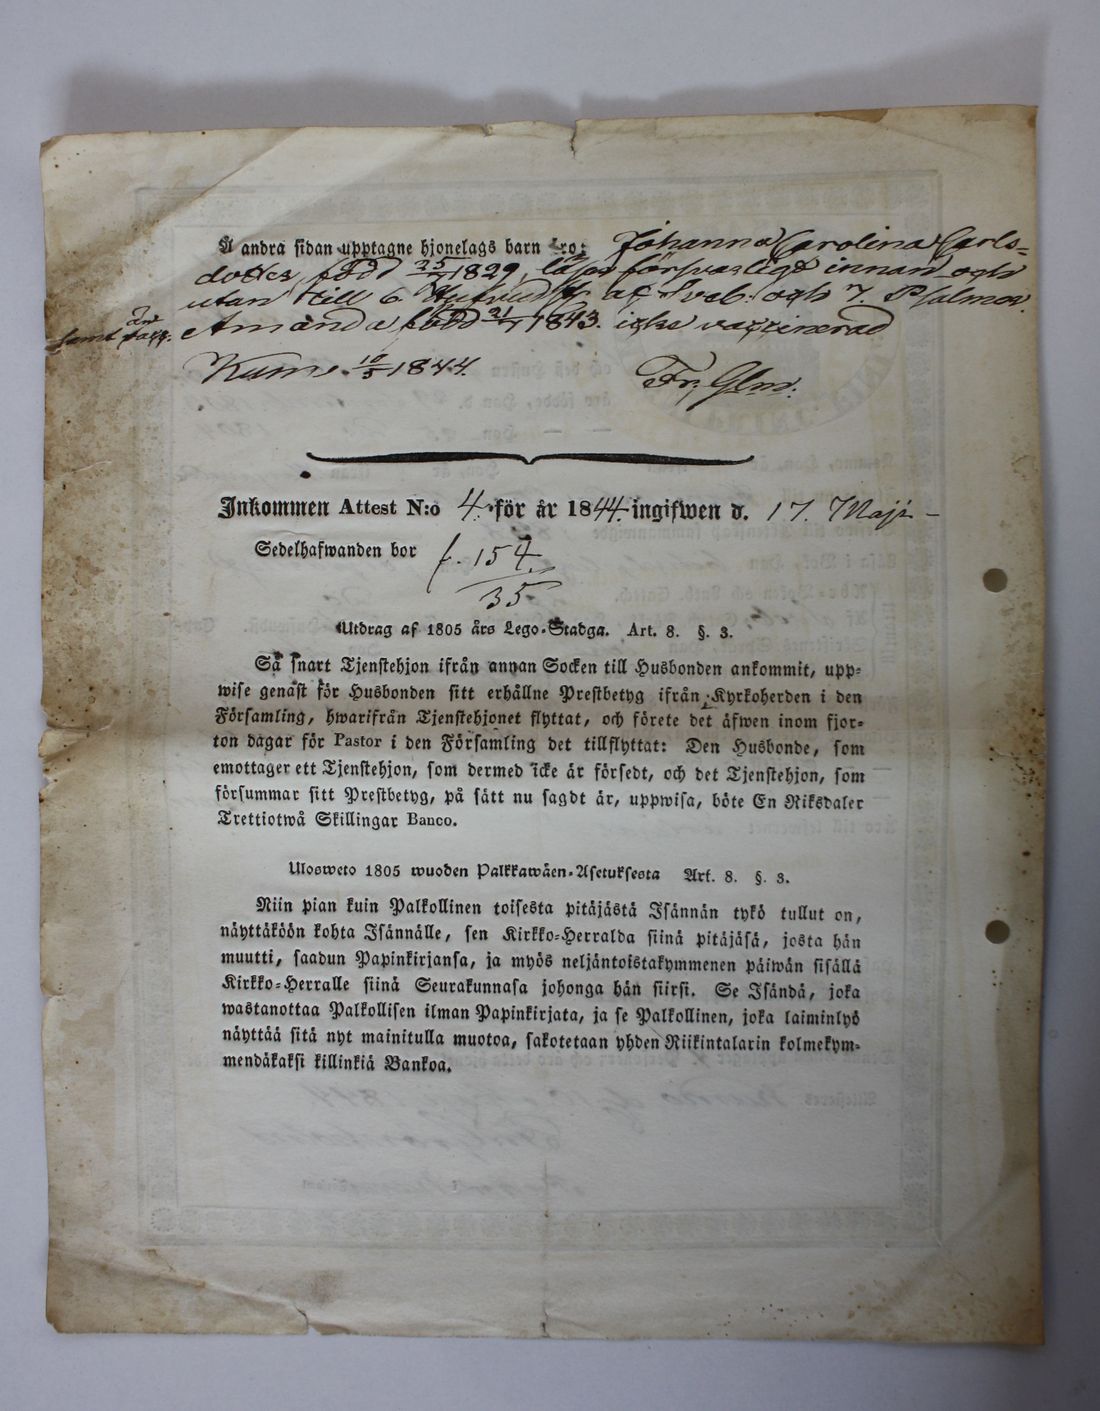 Å andra sidan upptagne hjonelags barn äro: Johanna Carolina Carls-
dotter, född 25/ 1829, läser försvarligt innan och
utan till 6. Hufvud st. af Sveb. och 7. Psalmer.
samt är vacc. Amanda född 21/1 1843. icke vaccinerad
Kumo 10/5 1844. Fr: Glm:
Inkommen Attest N:o 4. för år 1844. ingifwen d. 17. Maji
Sedelhafwanden bor f. 154/35
Utdrag af 1805 års Lego-Stadga. Art. 8. §. 3.
Så snart Tjenstehjon ifrån annan Socken till Husbonden ankommit, upp-
wise genast för Husbonden sitt erhållne Prestbetyg ifrån Kyrkoherden i den
Församling, hwarifrån Tjenstehjonet flyttat, och förete det äfwen inom fjor-
ton dagar för Pastor i den Församling det tillflyttat: Den Husbonde, som
emottager ett Tjenstehjon, som dermed icke är försedt, och det Tjenstehjon, som
försummar sitt Prestbetyg, på sätt nu sagdt är, uppwisa, böte En Riksdaler
Trettiotwå Skillingar Banco.
Ulosweto 1805 wuoden Palkkawäen-Asetuksesta Art. 8. §. 3.
Niin pian kuin Palkollinen toisesta pitäjästä Isännän tykö tullut on,
näyttäköön kohta Isännälle, sen Kirkko-Herralda siinä pitäjäsä, josta hän
muutti, saadun Papinkirjansa, ja myös neljäntoistakymmenen päiwän sisällä
Kirkko-Herralle siinä Seurakunnasa johonga hän siirsi. Se Isändä, joka
wastanottaa Palkollisen ilman Papinkirjata, ja se Palkollinen, joka laiminlyö
näyttää sitä nyt mainitulla muotoa, sakotetaan yhden Riikintalarin kolmekym-
mendäkaksi killinkiä Bankoa.